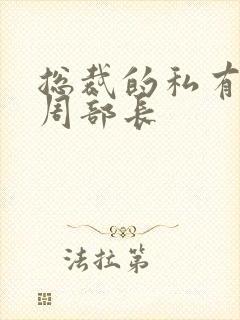 总裁的私有
周部长
法拉第